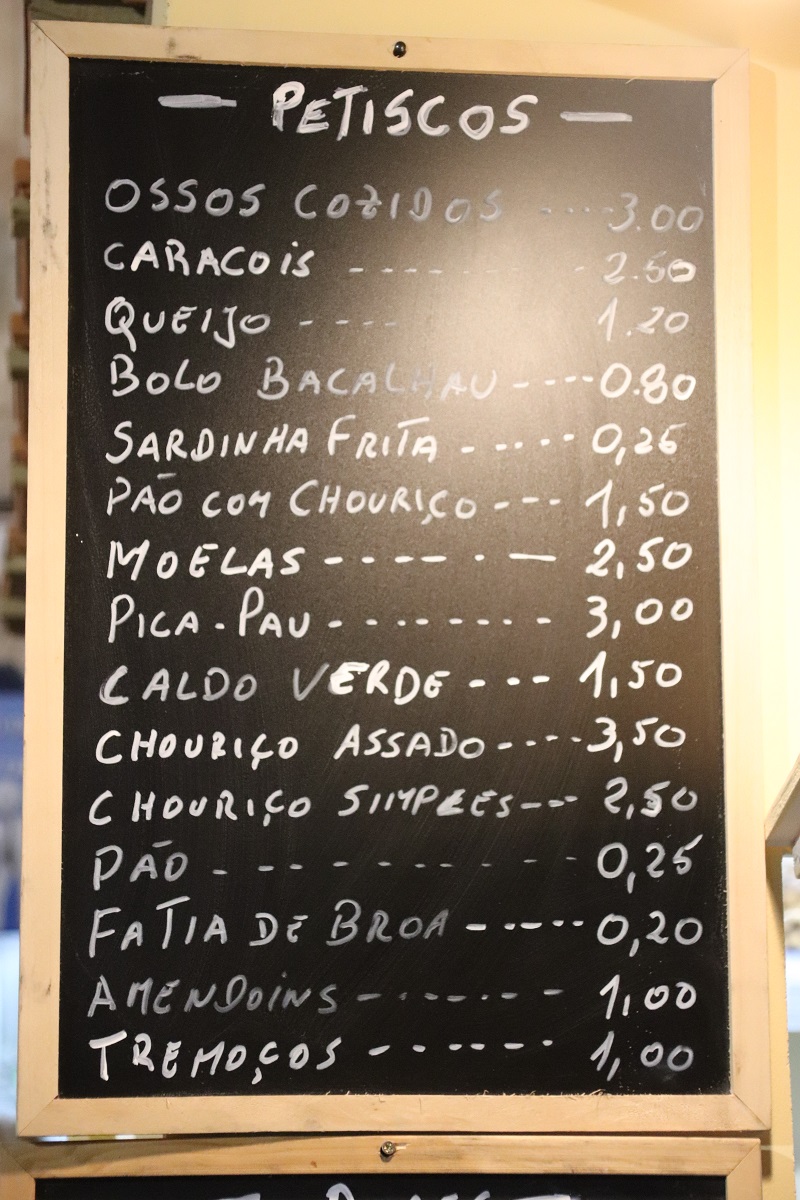 — PETISCOS —
OSSOS COZIDOS ----3.00
CARACOIS ------ - 2.50
QUEIJO ---- 1.20
BOLO BACALHAU ----0.80
SARDINHA FRITA ----- 0,25
PÃO COM CHOURIÇO --- 1,50
MOELAS ---- - — 2,50
PICA-PAU -------- 3,00
CALDO VERDE --- 1,50
CHOURIÇO ASSADO ----3,50
CHOURIÇO SIMPLES--- 2,50
PÃO --------- 0,25
FATIA DE BROA -----0,20
AMENDOINS ------ 1,00
TREMOÇOS ------ 1,00